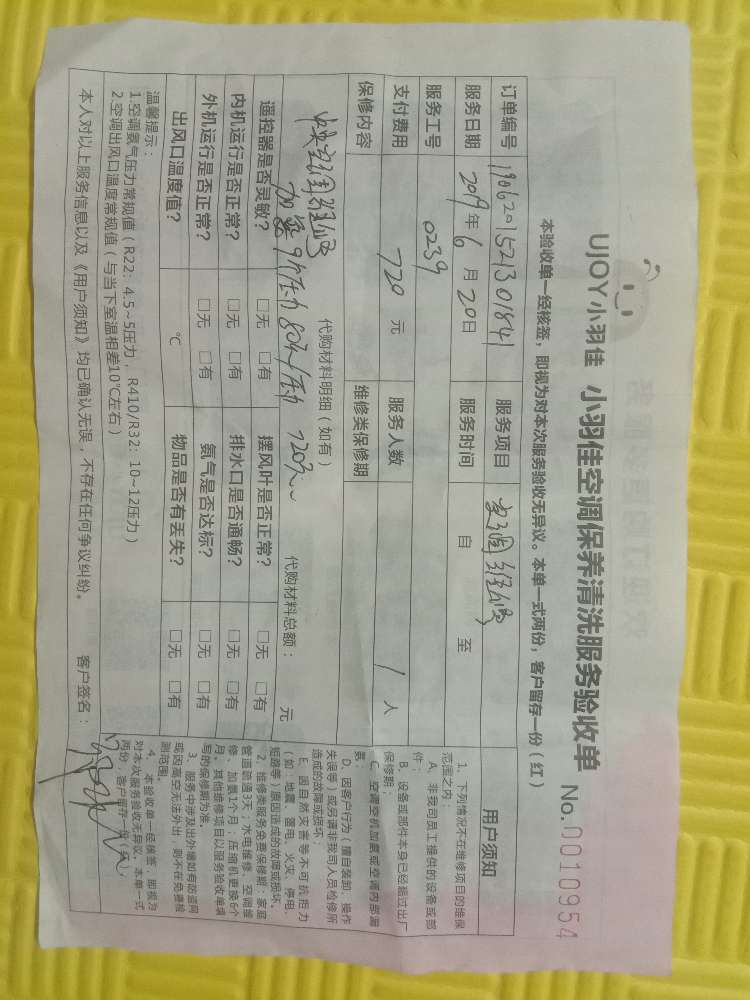 UJOY小羽佳 小羽佳空调保养清洗服务验收单 No.0010954
本验收单一经核签，即视为对本次服务验收无异议。本单一式两份，客户留存一份（红）
订单编号 1906201521301841 服务项目
服务日期 2019年6月20日 服务时间 自 至
服务工号 0239
支付费用 720元 服务人数 1人
保修内容 维修类保修期
代购材料明细（如有） 代购材料总额： 元
加氨9个压力 80元/压力 720元
遥控器是否灵敏？ □无 □有 摆风叶是否正常？ □无 □有
内机运行是否正常？ □无 □有 排水口是否通畅？ □无 □有
外机运行是否正常？ □无 □有 氨气是否达标？ □无 □有
出风口温度值？ ℃ 物品是否有丢失？ □无 □有
温馨提示：
1.空调氨气压力常规值（R22：4.5~5压力，R410/R32：10~12压力）
2.空调出风口温度常规值（与当下室温相差10℃左右）
本人对以上服务信息以及《用户须知》均已确认无误，不存在任何争议纠纷。 客户签名：
用户须知
1、下列情况不在维修项目的维保
范围之内：
A、非我司员工提供的设备或部
件；
B、设备或部件本身已经超过出厂
保修期；
C、空调空机加氨或空调内部漏
氨；
D、因客户行为（擅自装卸、操作
失误等）或另请非我司人员检修所
造成的故障或损坏；
E、因自然灾害等不可抗拒力
（如：地震、雷电、火灾、停电、
短路等）原因造成的故障或损坏。
2、维修类服务免费保修期：家庭
管道疏通3天；水电维修、空调维
修、加氨1个月；压缩机更换6个
月。其他维修项目以服务验收单填
写的保修期为准。
3、服务中涉及出外墙如有防盗网
或因高空无法外出，则不在免费检
测范围。
4、本验收单一经核签，即视为
对本次服务验收无异议。本单一式
两份，客户留存一份（红）。